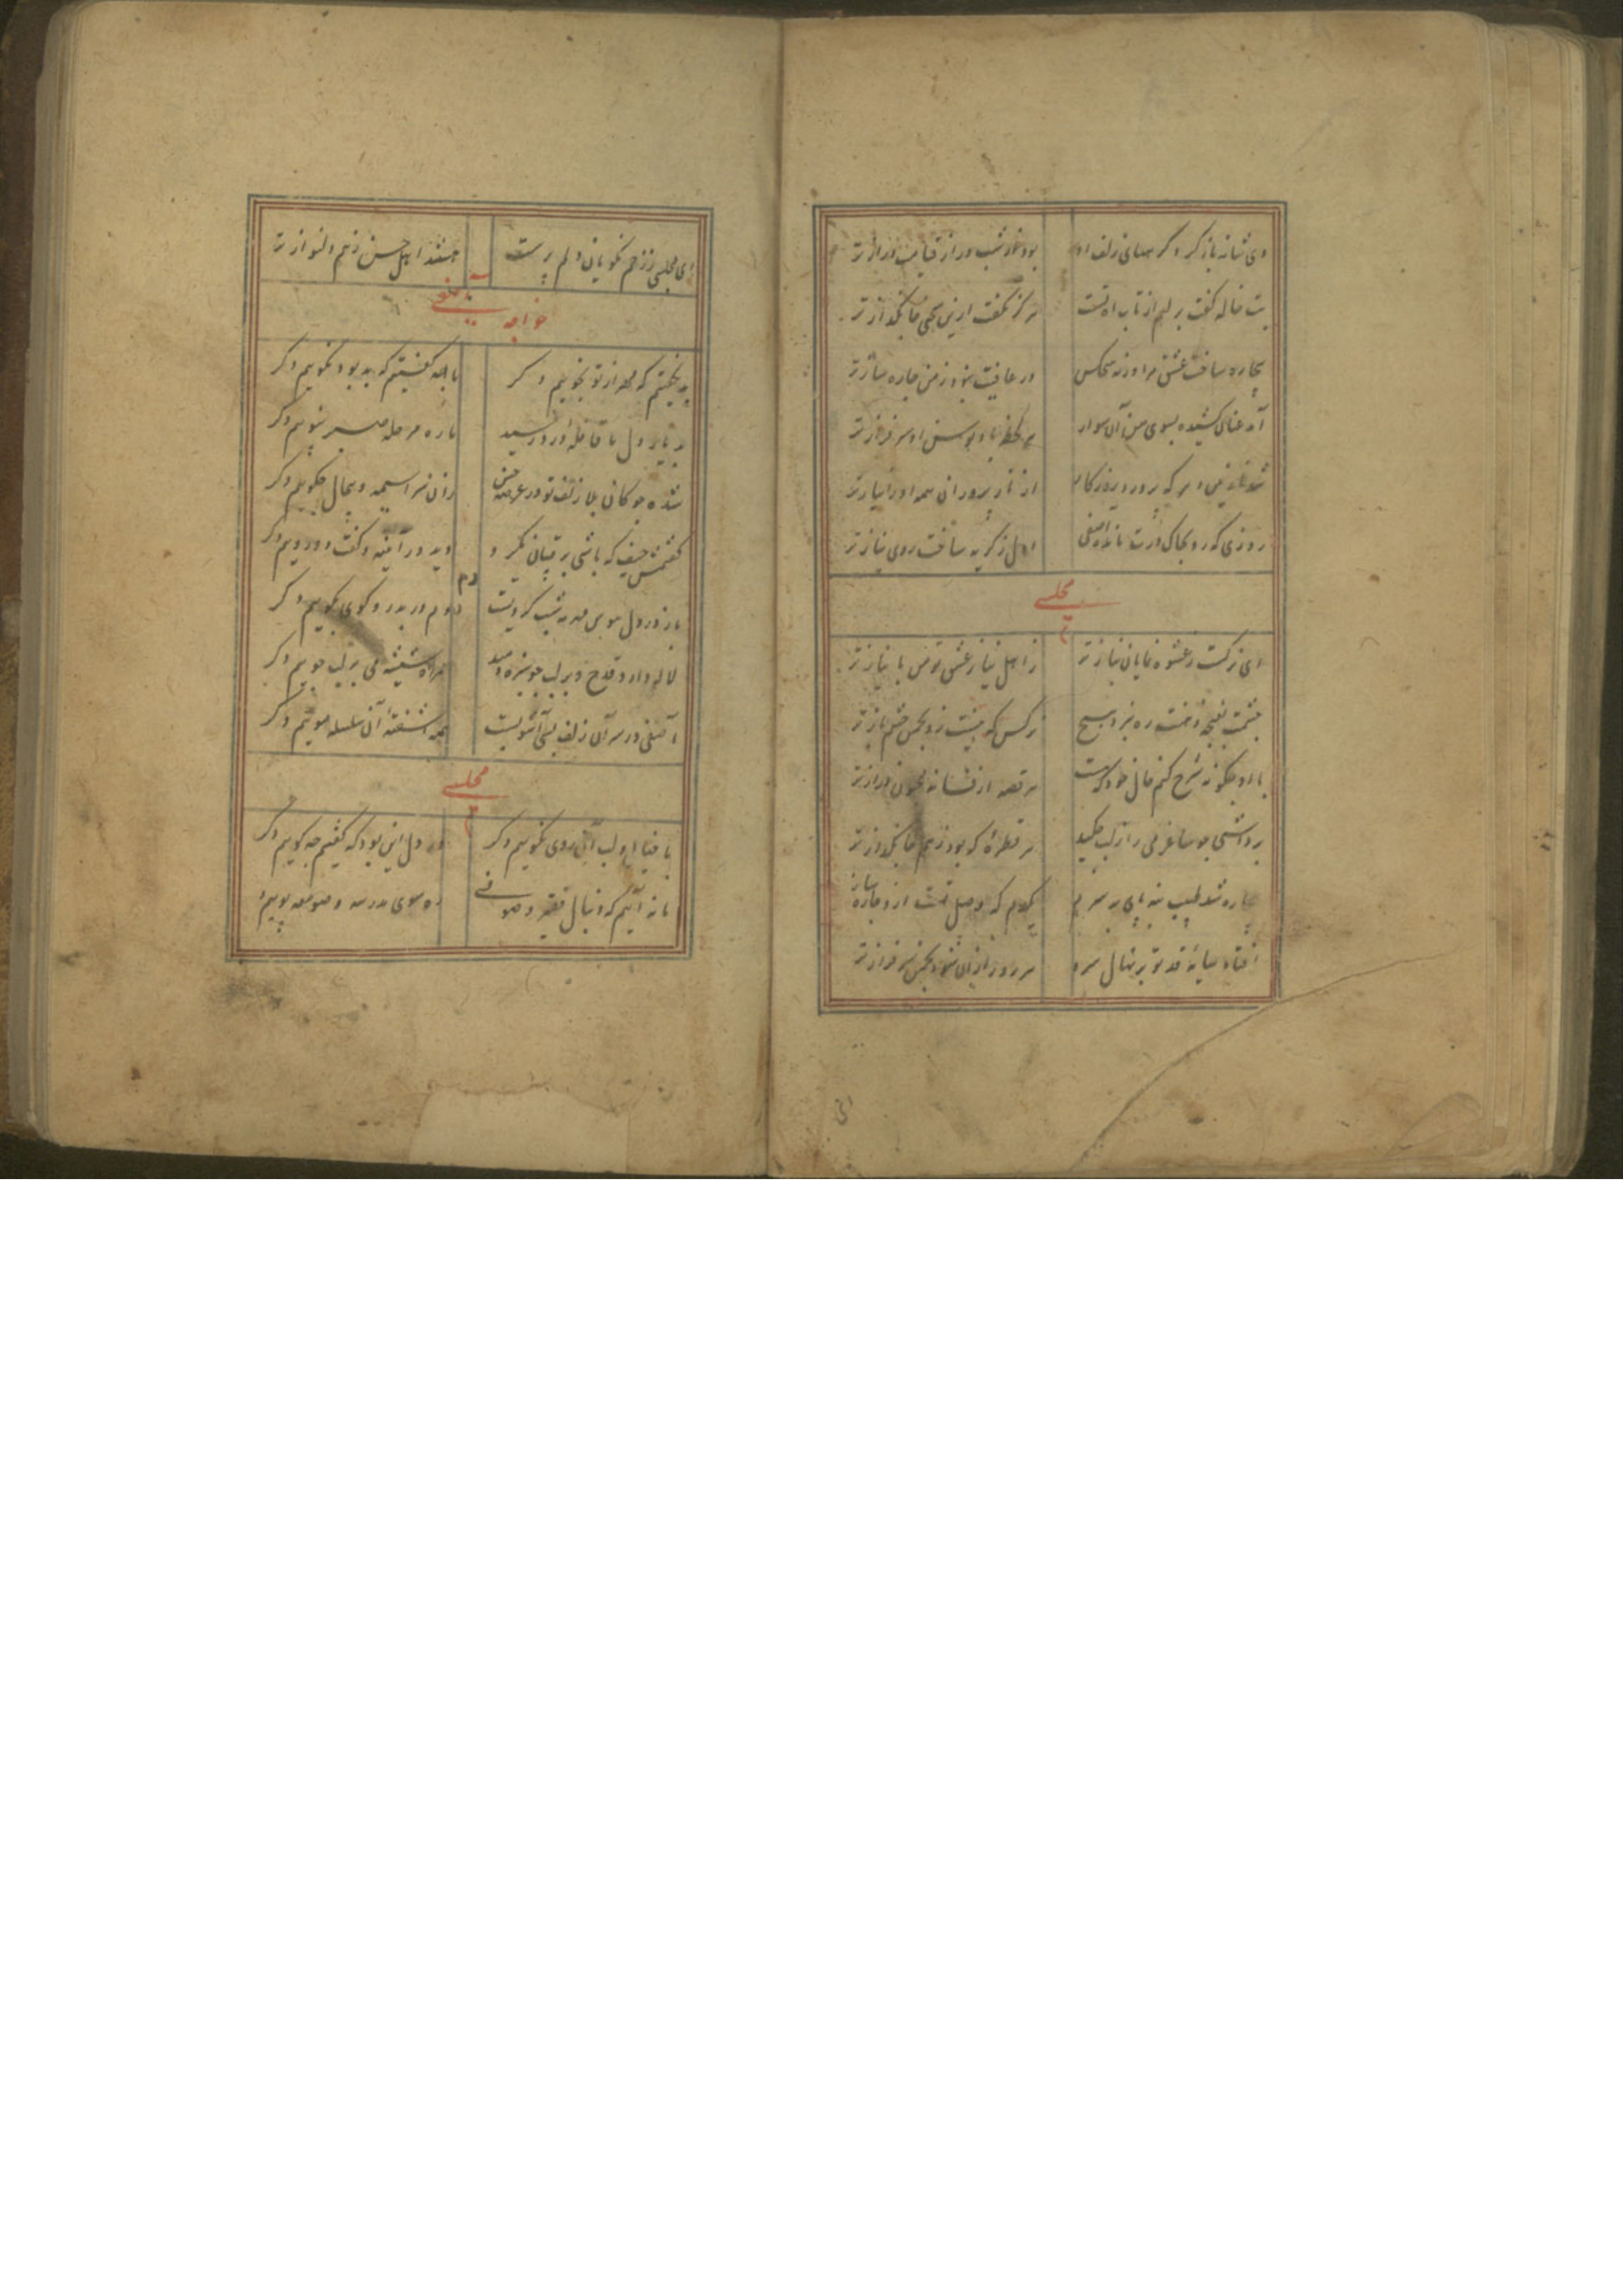 دی شانه باز کرد کرهای زلف او بود درشب دراز قیامت درازتر
تب خاله گفت بر لبم از تاب هرگز نگفت ازین سخنی جانگدازتر
بیچاره ساخت عشق مرا ورنه هیچکس در عافیت نبود ز من چاره سازتر
آمد عنان کشیده بسوی من آن سوار هر لحظه باد توسن او سرفرازتر
از ناز پروران همه او را نیازتر
روزی که رو بخاک درت ماند آصفی اول ز گریه ساخت روی نیازتر
مجلسی
ای نرکست ز عشوه نمایان نیازتر ز اهل نیاز عشق تو من با نیازتر
نرکس که نیست زو بچمن چشم بازتر
با او چگونه شرح کنم حال خود که هست هر قصه از فسانه مجنون درازتر
برداشتی چو ساغر می را ز لب چکید هر قطرهٔ که بود ز هم جانگدازتر
چاره شد طبیب منه پای بر سرم کردم که وصل تست ازو چاره سازتر
افتاد سایهٔ قد تو بر نهال سرو هر روز ازان شود بچمن سرفرازتر
ای مجلسی ز زخم نکویان دلم پرست هستند اهل حسن ز هم دلنوازتر
خواجه آصفی
بد نکفتیم که مهر از تو نجوییم دکر با همه کفتیم که بد بود نکوییم دکر
بدیار دل ما قافلهٔ درد رسید ما ره مرحله صبر نپوییم دکر
شده چوکان بلا زلف تو در عرصه حسن زان سراسیمه و بیحال چو کوییم دکر
کفتمش حیف که باشی برقیبان یکرو دید در آینه و کفت دو روییم دکر
باز در دل هوس مه شب کردیست دوم در بدر و کوی بکوییم دکر
لاله دارد قدح و بر لب جو سبزه دمید همراه شیشه می بر لب جوییم دکر
آصفی در سر آن زلف بسی آشوبیست همه آشفتهٔ آن سلسله موییم دکر
مجلسی
با خیال لب آن روی نکوییم دکر در دل این بود که کفتیم چه کوییم دکر
ما نه آنیم که دنبال فقیه و صوفی ره سوی مدرسه و صومعه پوییم دکر